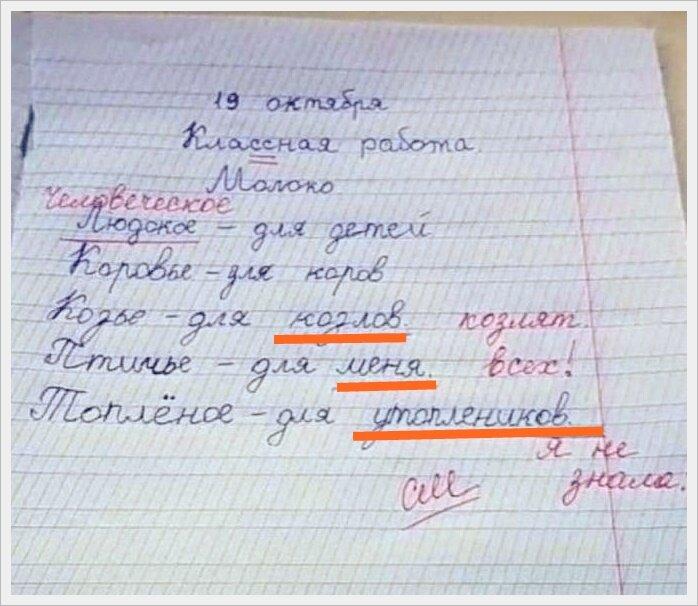 19 октября
Классная работа.
Молоко
Человеческое
Людское – для детей
Коровье – для коров
Козье – для козлов. козлят.
Птичье – для меня. всех!
Топлёное – для утоплеников.
я не
знала.
См